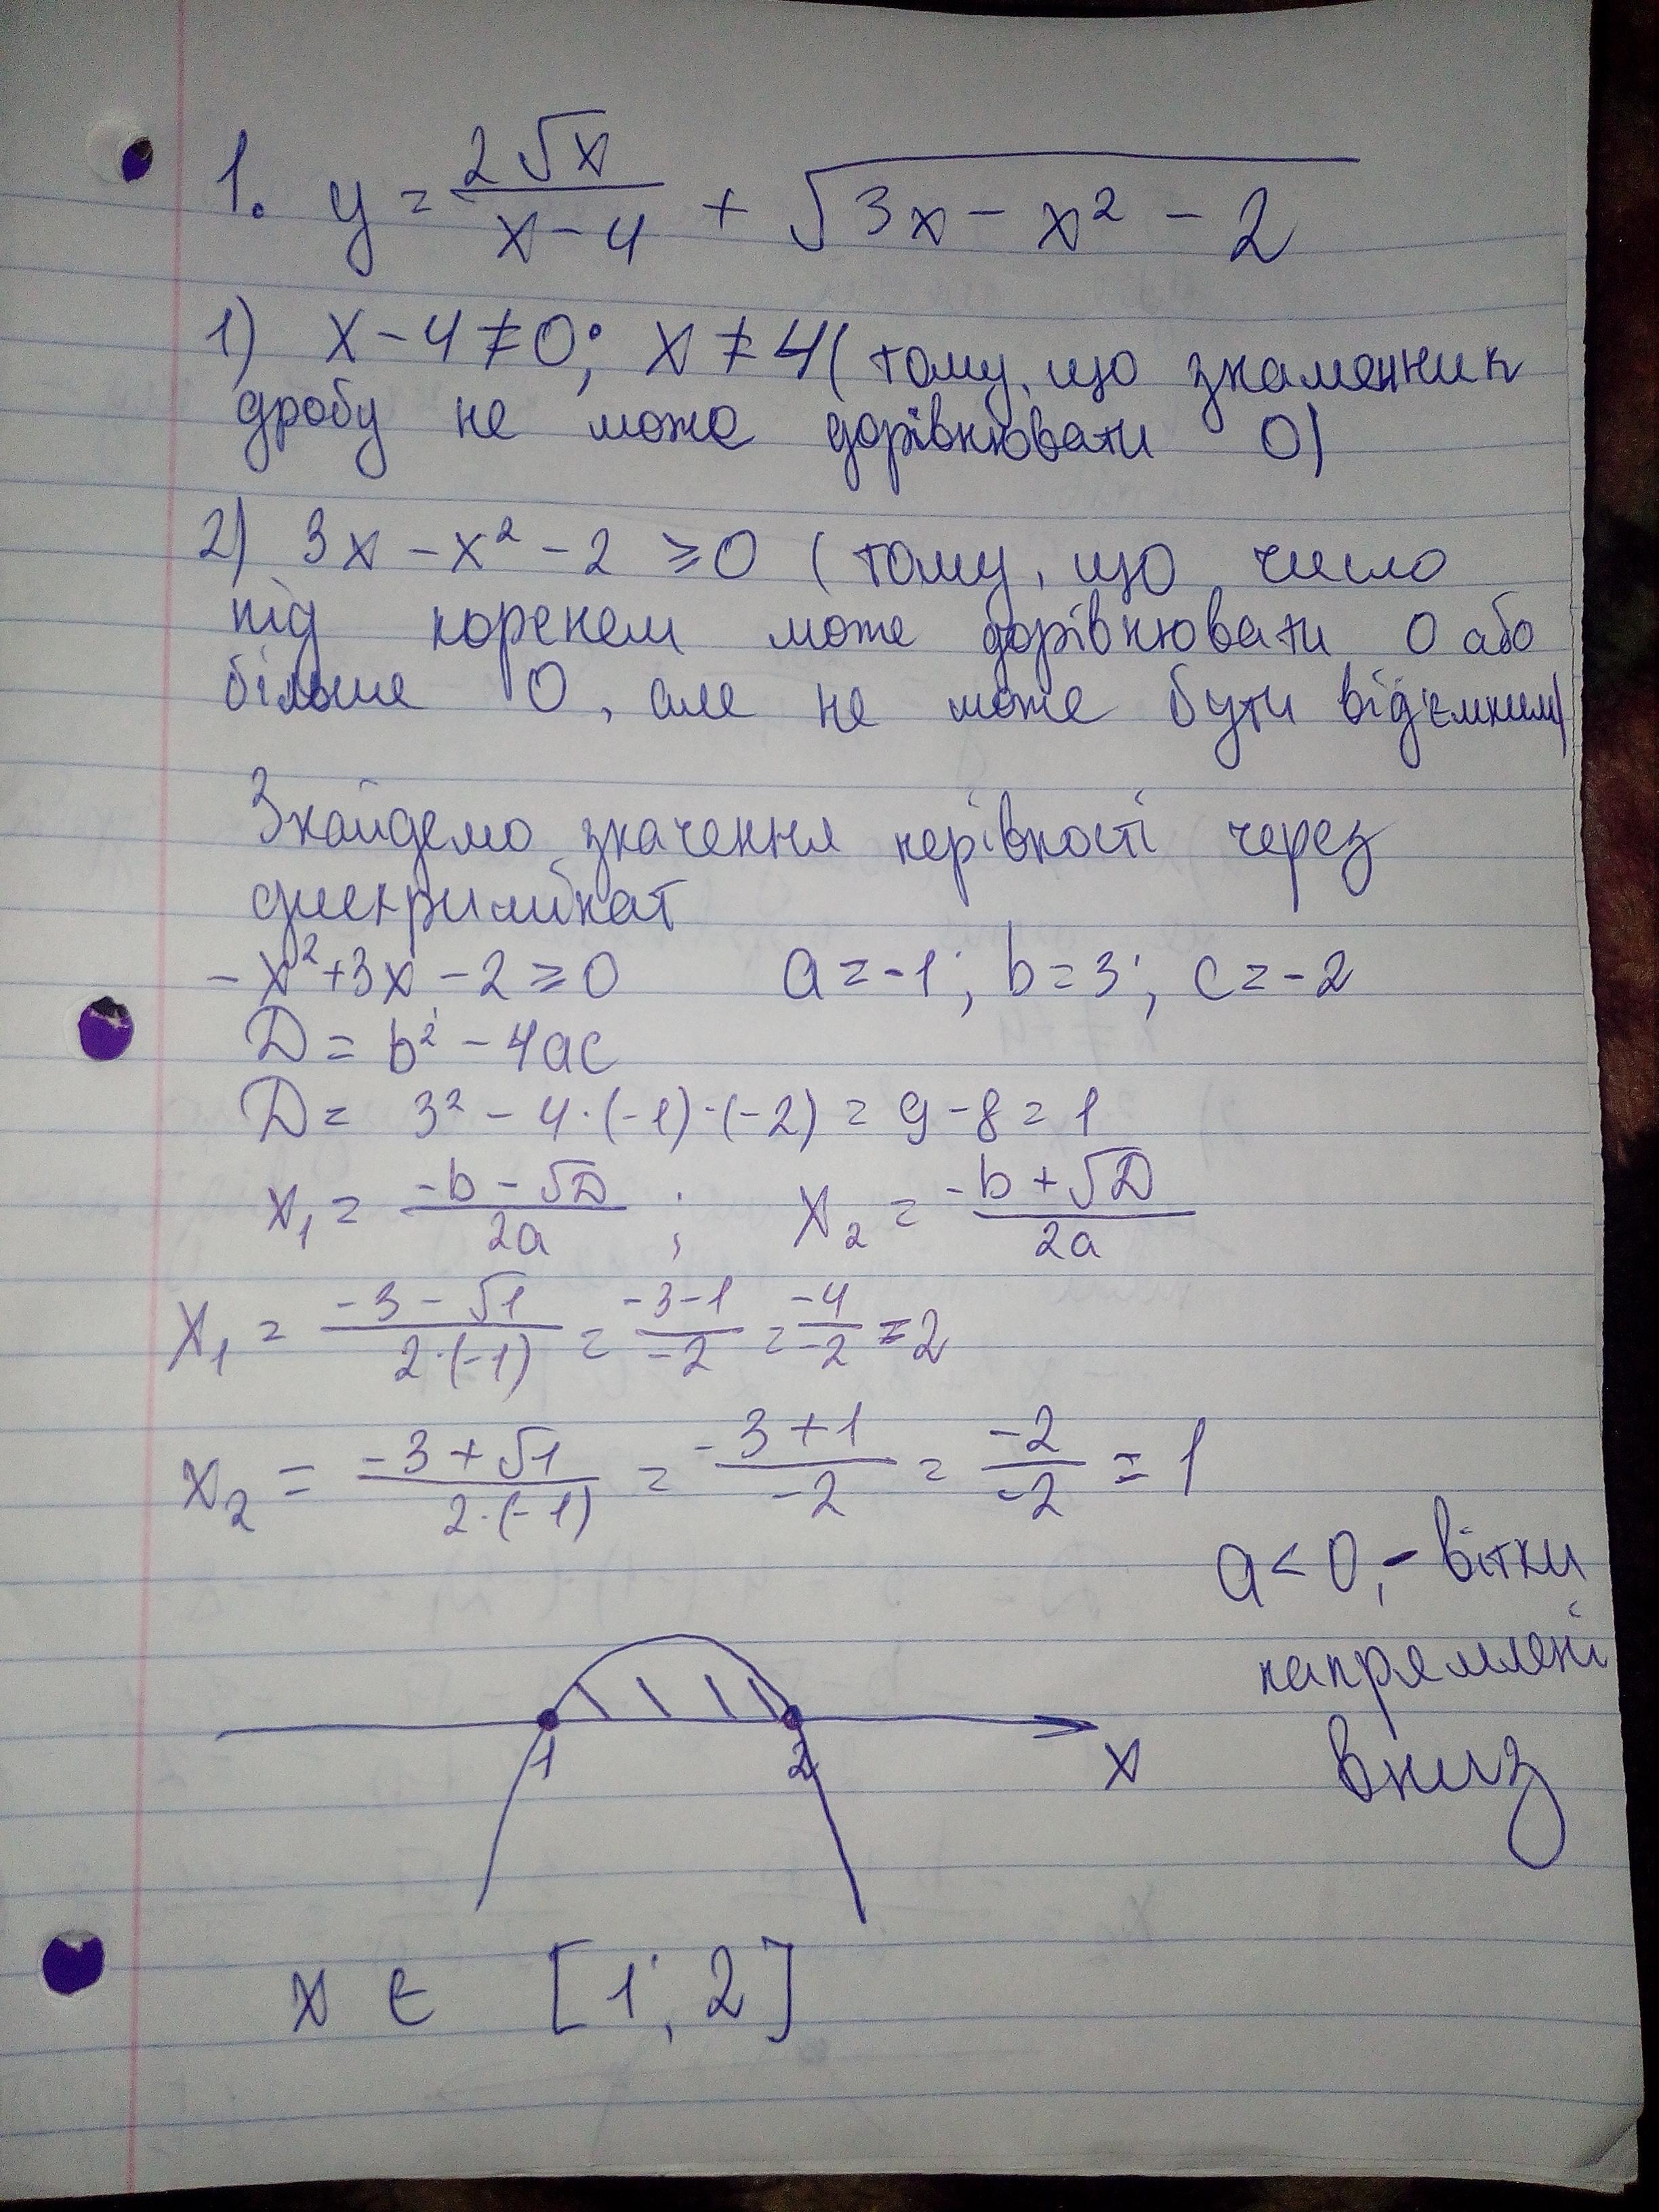 1. y = 2√x / x-4 + √3x - x² - 2
1) x - 4 ≠ 0; x ≠ 4 (тому, що знаменник
дробу не може дорівнювати 0)
2) 3x - x² - 2 ≥ 0 (тому, що число
під коренем може дорівнювати 0 або
більше 0, але не може бути від'ємним)
Знайдемо значення нерівності через
дискримінат
-x² + 3x - 2 ≥ 0 a = -1; b = 3; c = -2
D = b² - 4ac
D = 3² - 4·(-1)·(-2) = 9 - 8 = 1
x₁ = -b - √D / 2a ; x₂ = -b + √D / 2a
x₁ = -3 - √1 / 2·(-1) = -3-1 / -2 = -4 / -2 = 2
x₂ = -3 + √1 / 2·(-1) = -3+1 / -2 = -2 / -2 = 1
a < 0, - вітки
напрямлені
вниз
1 2 x
x ∈ [1; 2]